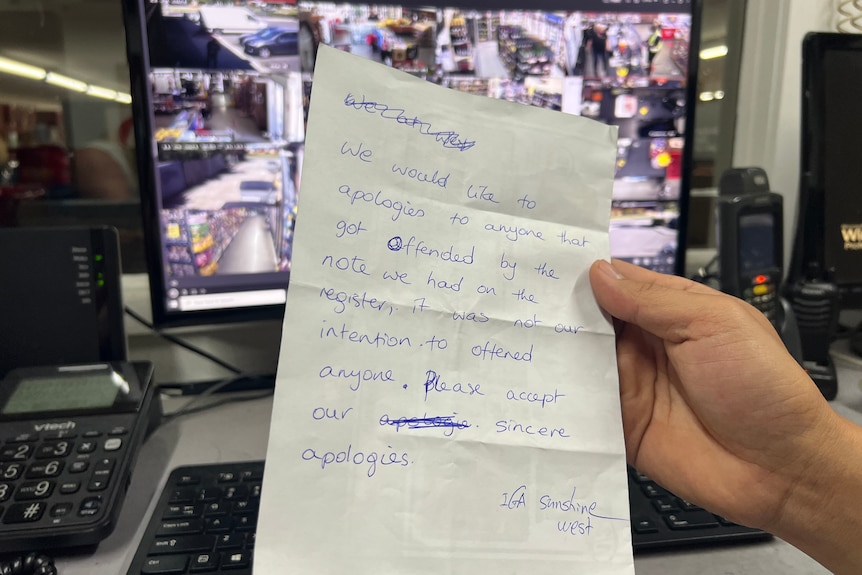 We would like to
apologies to anyone that
got offended by the
note we had on the
register, it was not our
intention. to offened
anyone. Please accept
our apologie. sincere
apologies.
IGA sunshine
west
vtech
2
3
5
6
8
9
#